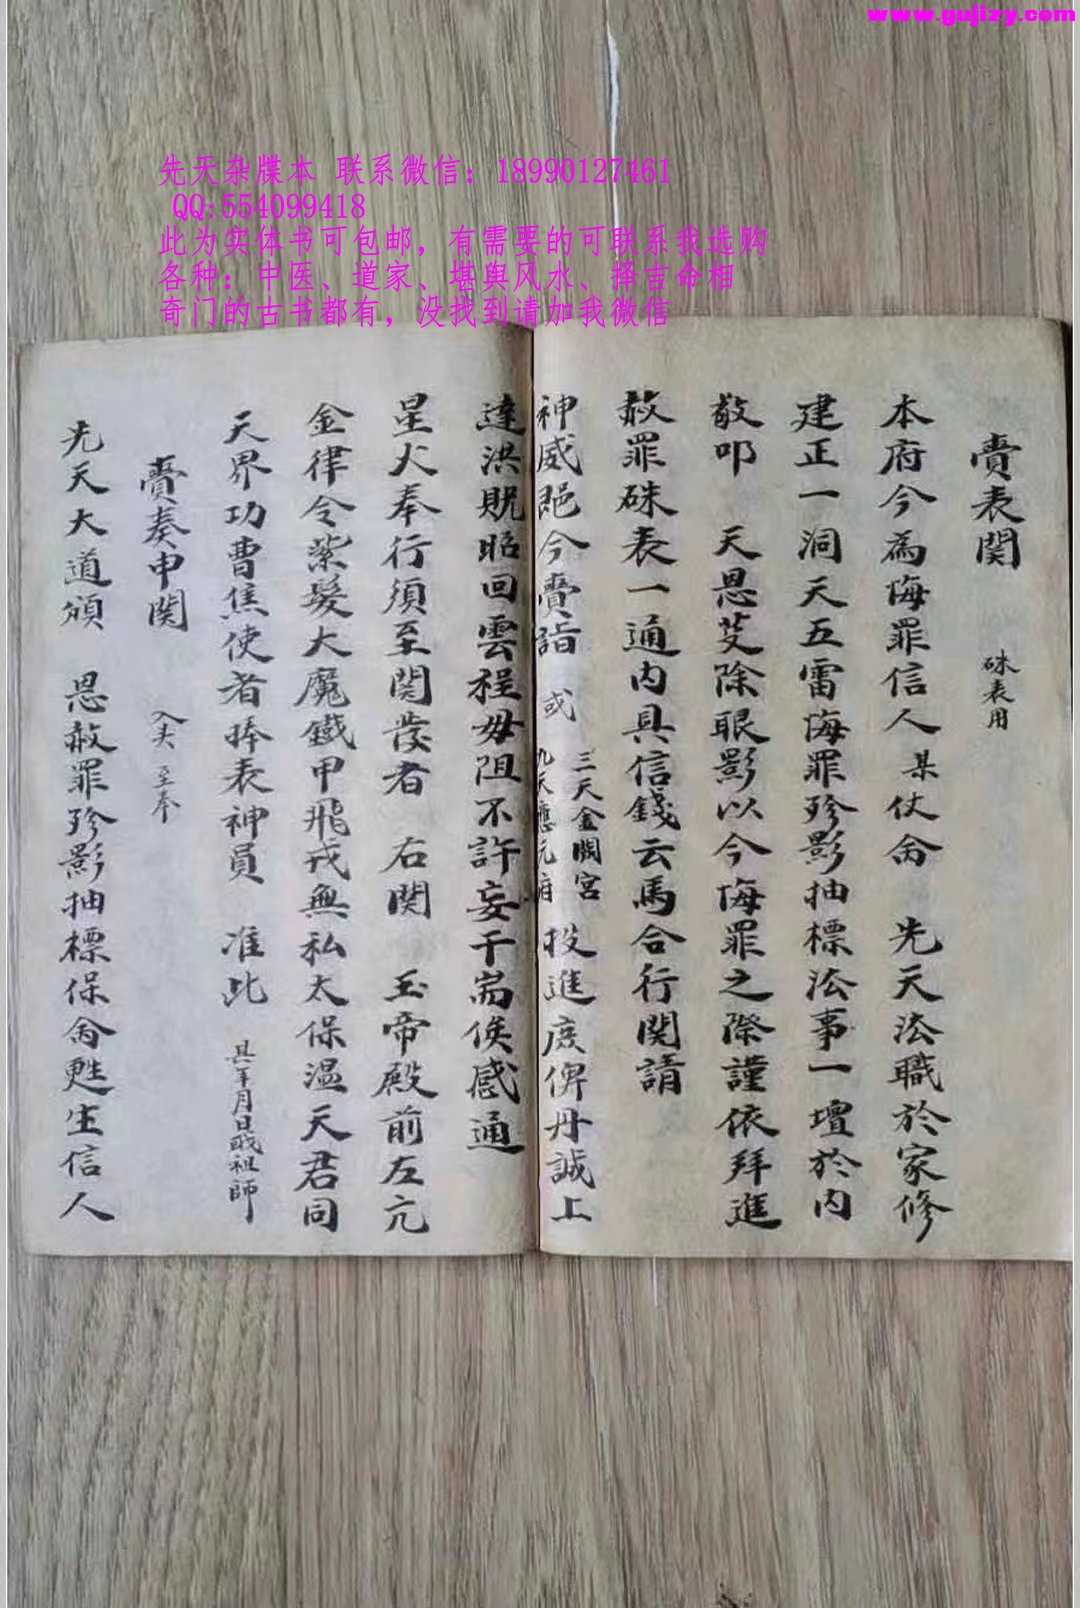 www.gujizy.com
先天杂牒本 联系微信：18990127461
QQ:554099418
此为实体书可包邮，有需要的可联系我选购
各种：中医、道家、堪舆风水、择吉命相
奇门的古书都有，没找到请加我微信
賫表関 硃表用
本府今為悔罪信人 某 仗侖 先天法職於家修
建正一洞天五雷悔罪殄影抽標法事一壇於内
敬叩 天恩芟除眼影以今悔罪之際謹依拜進
赦罪硃表一通内具信錢云馬合行関請
神威 今賫詣 或 三天金闕宮 九天應元府 投進庻俾丹誠上
達洪貺昭回雲程毋阻不許妄干耑俟感通
星火奉行須至関發者 右関 玉帝殿前左亢
金律令紫髮大魔鐵甲飛戎無私太保温天君同
天界功曹焦使者捧表神員 准此 具年月日職祖師
賫奏申関 入夫 至奉
先天大道頒 恩赦罪殄影抽標保侖甦生信人